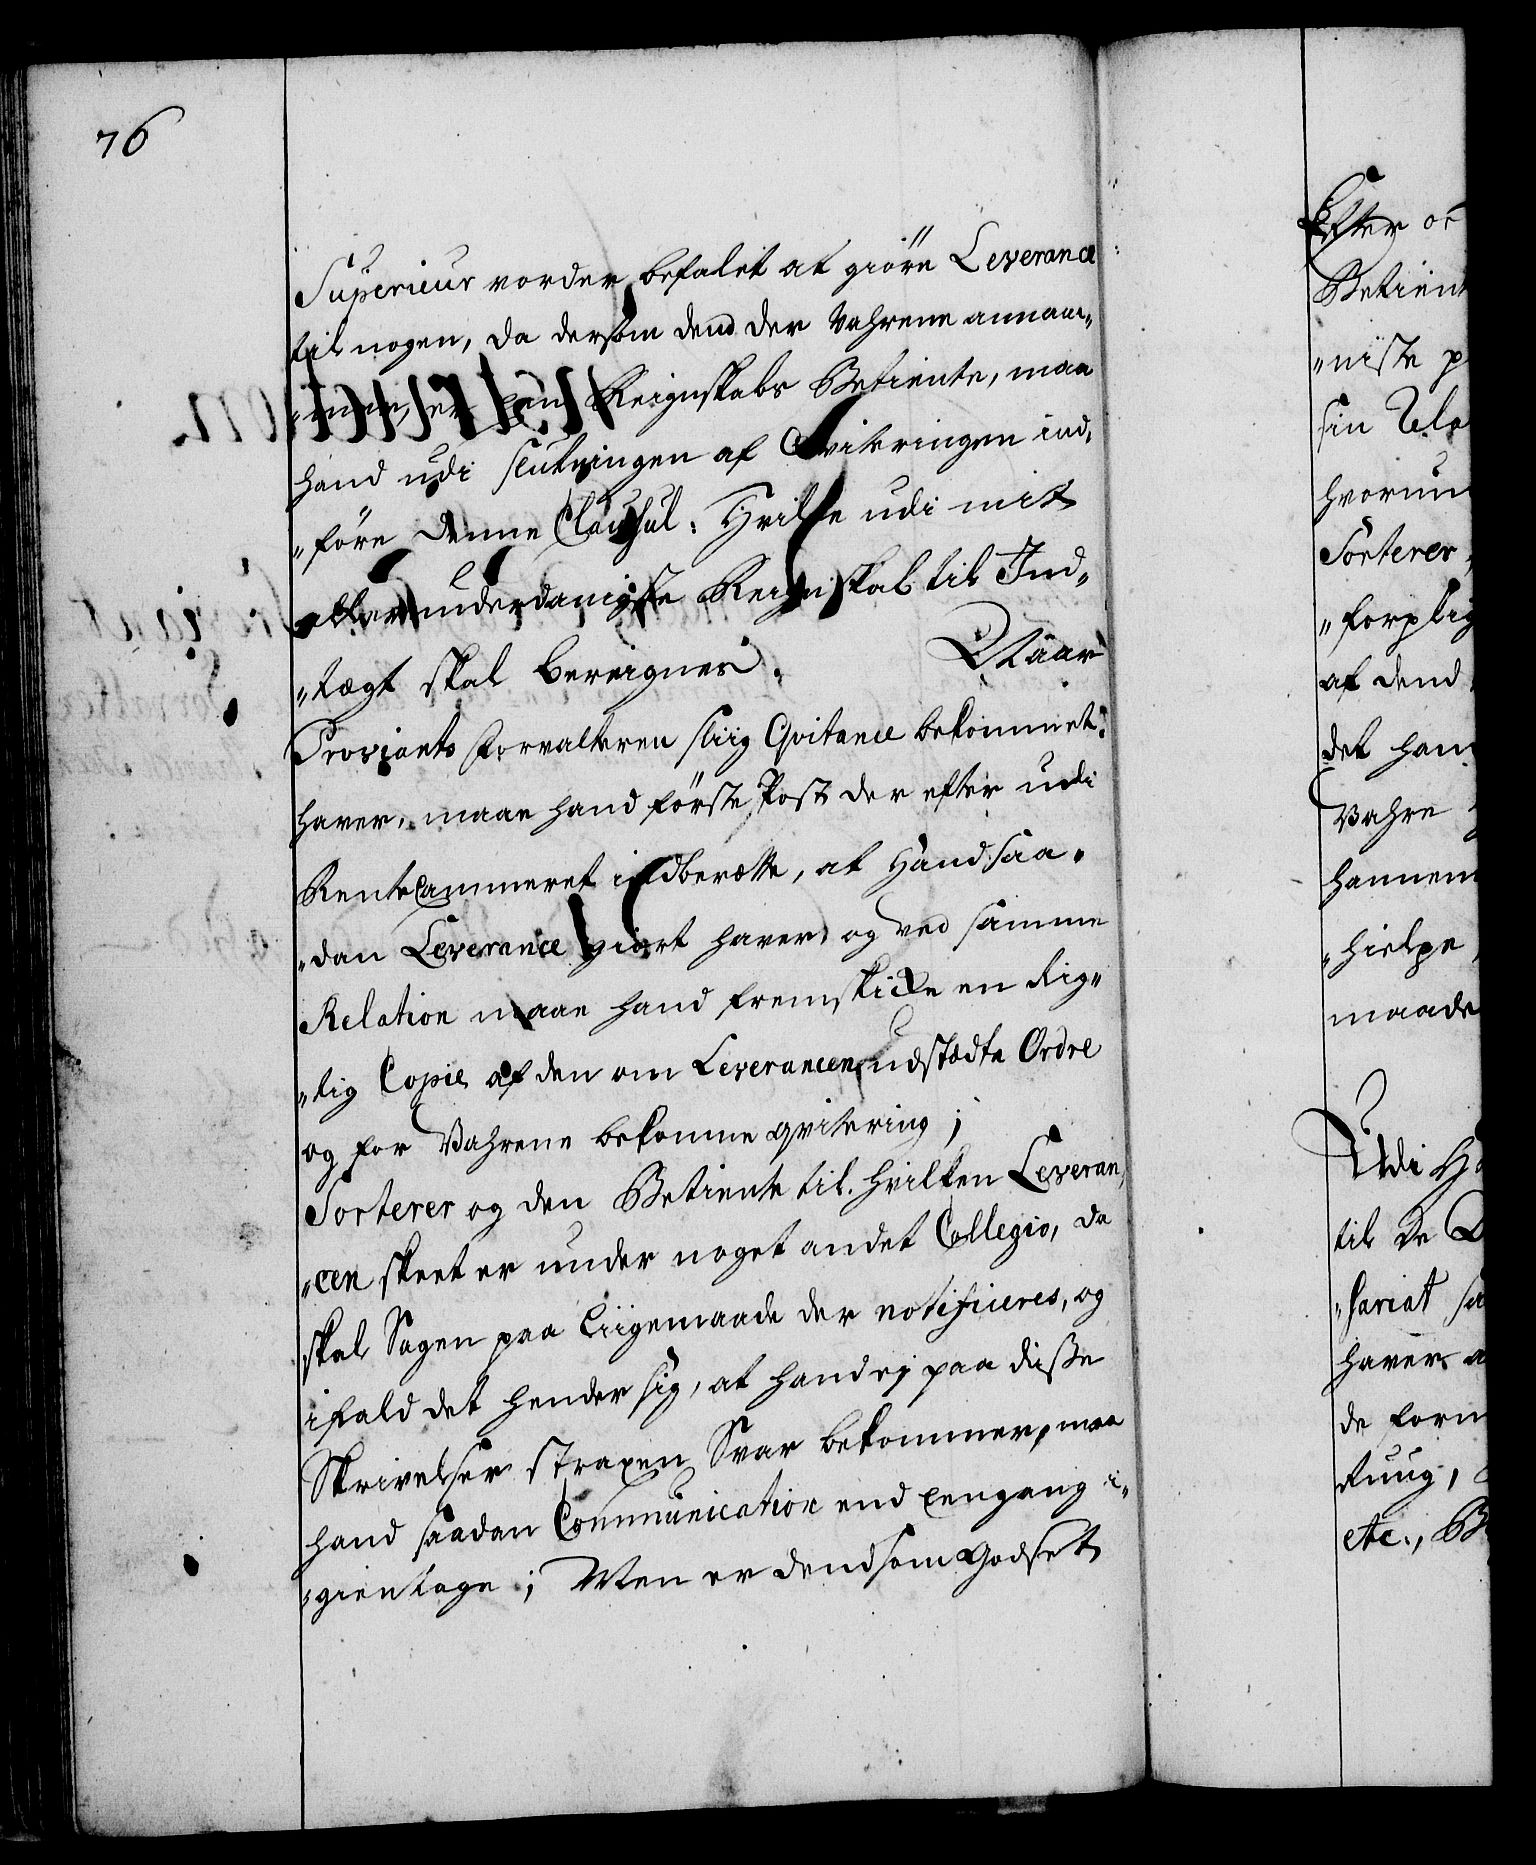 76
Superieur vorder befalet at giöre Leverance
til nogen, da dersom dend der Vahrene annam„
„mer, er en Reignskabs Betiente, maa
hand udi slutningen af Qvitteringen ind„
„före denne Clausul: Hvilke udi mit
allerunderdanigste Reignskab til Ind„
„tægt skal bereignes. Naar
Proviants Forvalteren sliig Qvitance bekommet
haver, maae hand förste Post der efter udi
Rente Cammeret indberætte, at Hand saa„
„dan Leverance giort haver, og ved samme
Relation maae hand fremskicke en Rig„
„tig Copie af den om Leverancen udstædte Ordre
og for Vahrene bekomne qvitering;
Sorterer og den Betiente til hvilken Leveran„
„cen skeet er under noget andet Collegio, da
skal Sagen paa Liigemaade der notificeres, og
ifald det hender sig, at hand ej paa disse
Skrivelser straxen Svar bekommer, maa
hand saadan Communication end eengang i„
„gientage; Men er dend som Godset
Efter
Betient
„niste
sin
hvorun
Sorterer
„forplig
af dend
det ham
Vahre
hannem
„hielpe
maade
Udi
til de
„sariat
haver
de form
etc.,